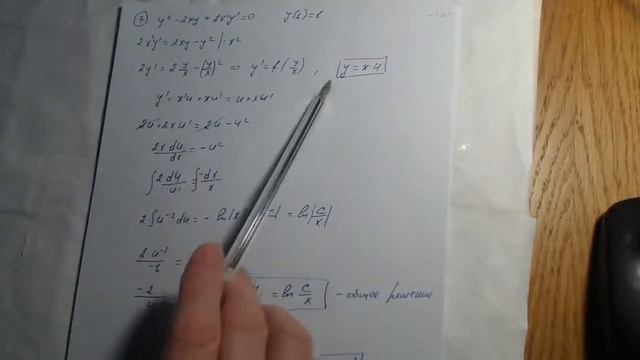 7 y² - 2xy + 2x²y' = 0 y(1) = 1
2x²y' = 2xy - y² | : x²
2y' = 2 y/x - (y/x)² ⇒ y' = f(y/x), y = x·u
y' = x'u + xu' = u + xu'
2u + 2xu' = 2u - u²
2x du/dx = -u²
∫ 2 du/u² = ∫ -dx/x
2∫u⁻²du = -ln|x = ln|C/x|
2u⁻¹/-1 =
-2 = ln C/x - общее решение